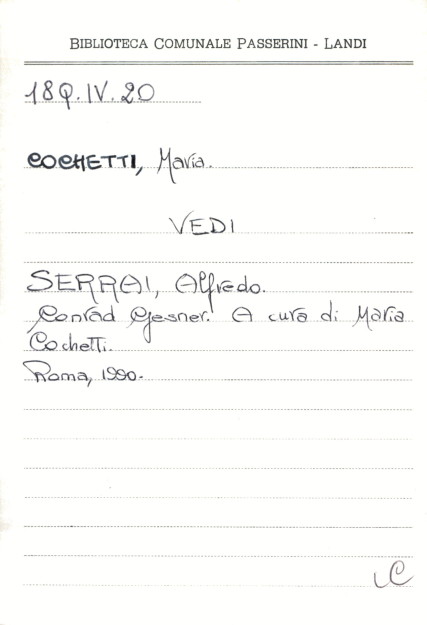 BIBLIOTECA COMUNALE PASSERINI - LANDI
18Q.IV.20
COCHETTI, Maria.
VEDI
SERRAI, Alfredo.
Conrad Gesner. A cura di Maria
Cochetti.
Roma, 1990.